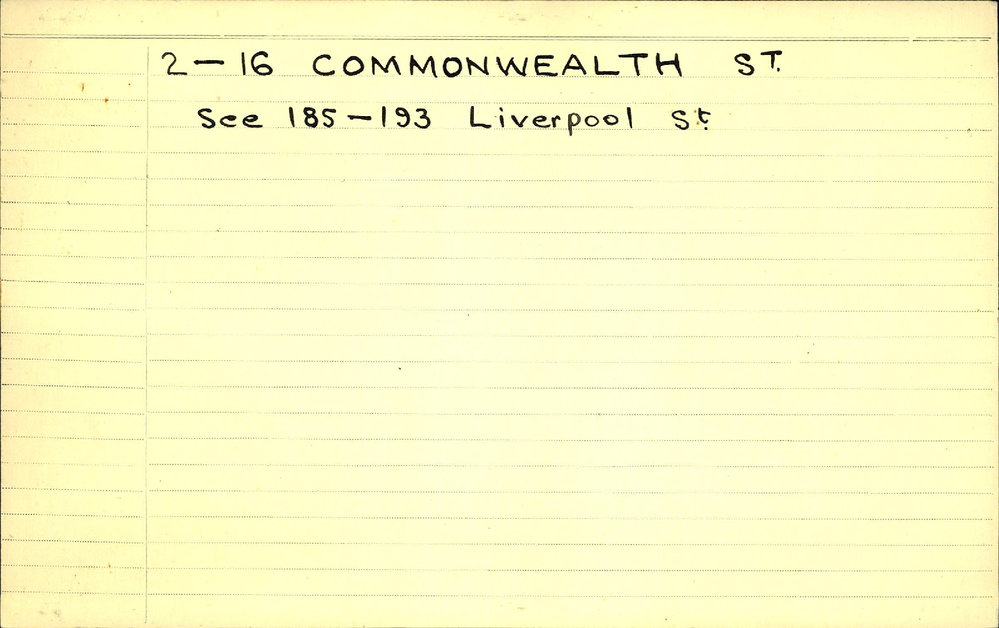 2 – 16 COMMONWEALTH ST.
See 185 – 193 Liverpool St.